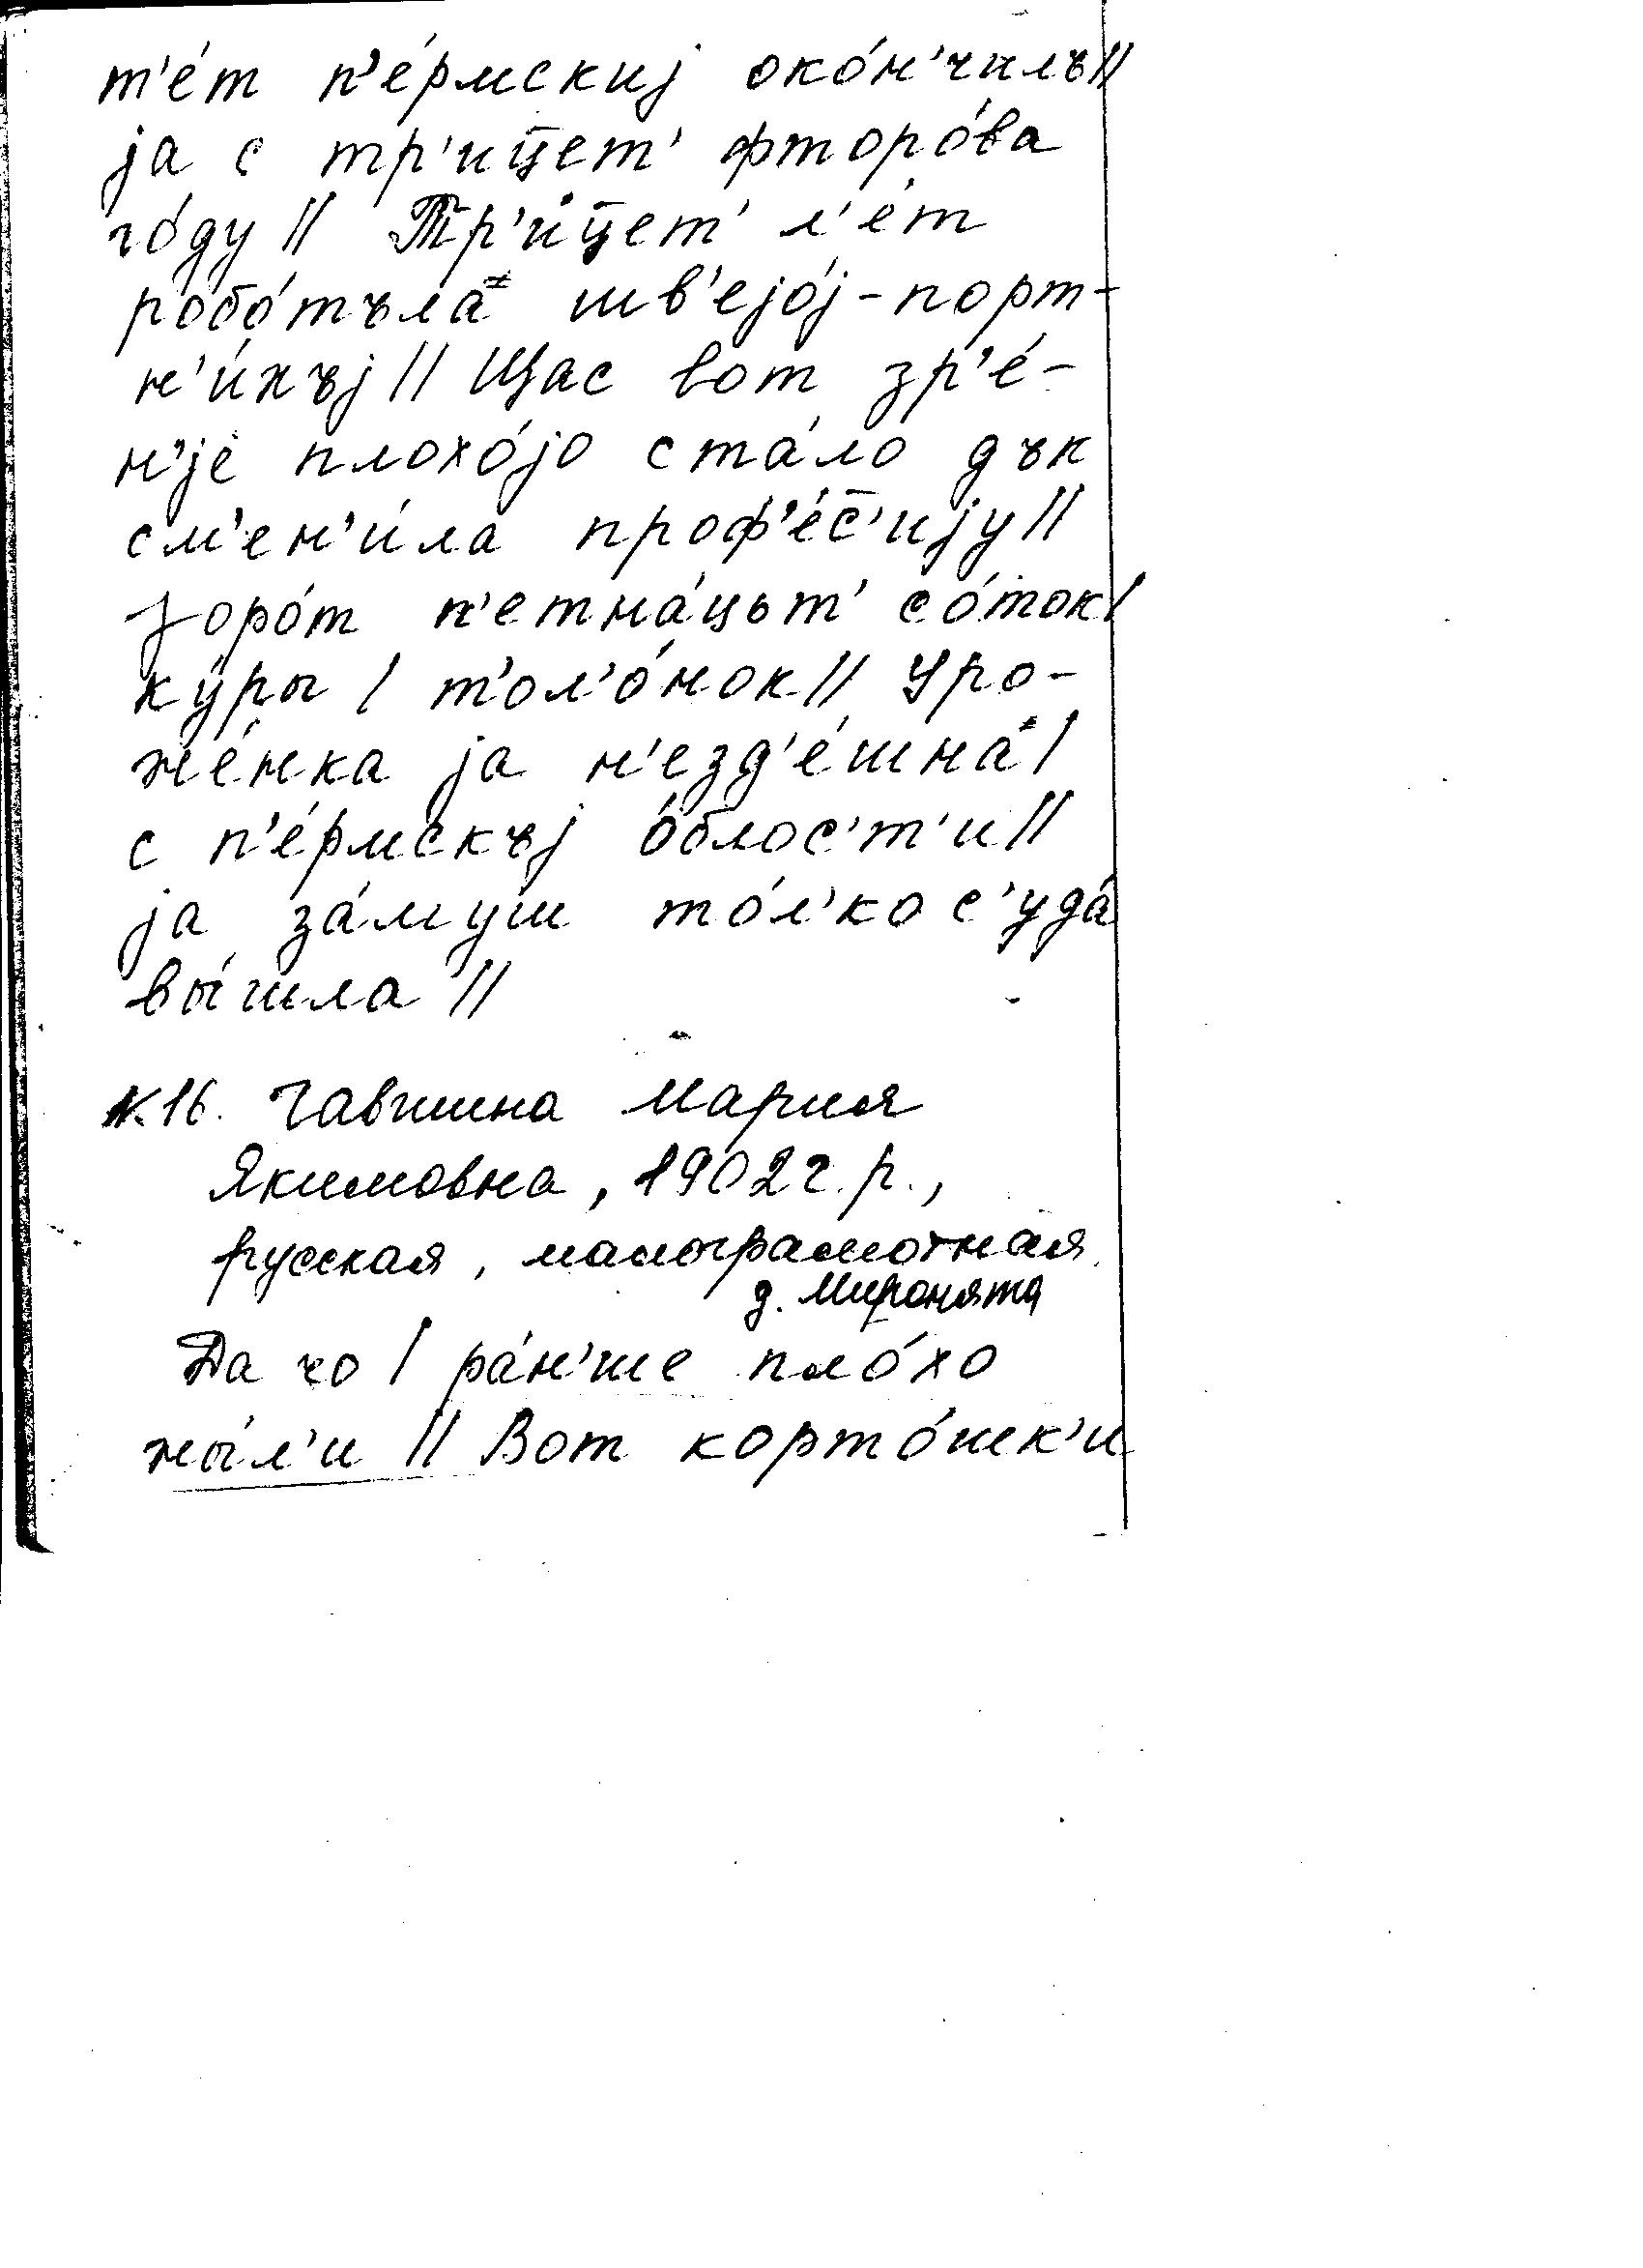 т'е́т п'е́рмскиj око́н'чилъ//
jа с тр'ицет' фторо́ва
го́ду // Тр'и́цет' л'е́т
робо́тъла шв'еjо́j-порт-
н'и́хъj // Щас вот зр'е́-
н'jе плохо́jо ста́ло дък
см'ен'и́ла проф'е́с̄'иjу//
γоро́т п'етна́цът' со́ток/
ку́ры / т'ол'о́нок// Уро-
же́нка jа н'езд'е́шна/
с п'е́рмскъj о́блос'т'и//
jа за́муш то́л'ко с'уда́
вы́шла //
N.16. Гавшина Мария
Якимовна, 1902 г.р.,
русская, малограмотная.
д. Миронята
Да чо / ра́н'ше пло́хо
жы́л'и // Вот корто́шк'и